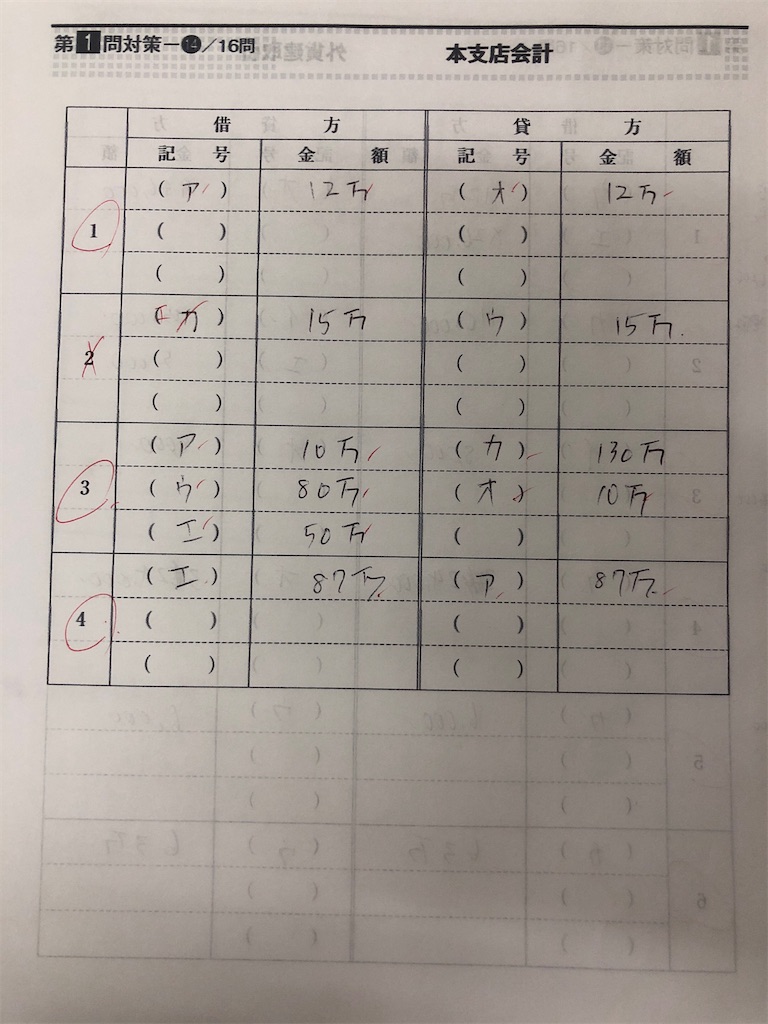 第1問対策-⓮/16問 本支店会計
借 方 貸 方
記 号 金 額 記 号 金 額
1 (ア) 12万 (オ) 12万
( ) ( )
( ) ( )
2 (カ) 15万 (ウ) 15万.
( ) ( )
( ) ( )
3 (ア) 10万 (カ) 130万
(ウ) 80万 (オ) 10万
(エ) 50万 ( )
4 (エ) 87万 (ア) 87万
( ) ( )
( ) ( )